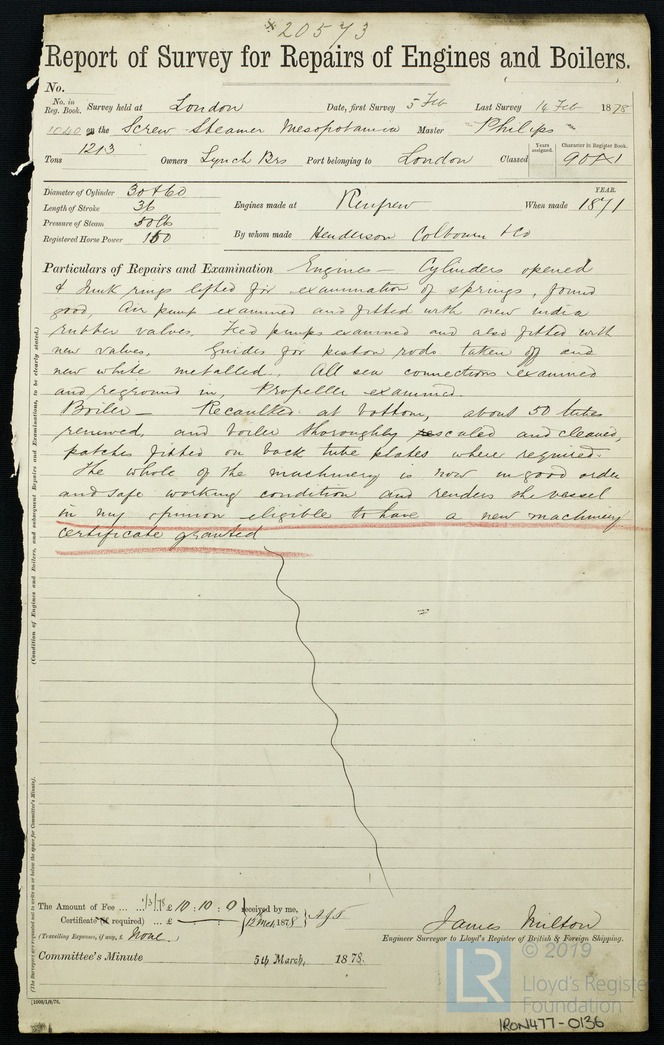 * 20573
Report of Survey for Repairs of Engines and Boilers.
No.
No. in Reg. Book. Survey held at London Date, first Survey 5 Feb Last Survey 14 Feb 1878
1040 on the Screw Steamer Mesopotamia Master Philips
Tons 1213 Owners Lynch Brs Port belonging to London Classed Years assigned. Character in Register Book. 90A1
Diameter of Cylinder 30 & 60
Length of Stroke 36
Pressure of Steam 50 lb
Registered Horse Power 150
Engines made at Renfrew YEAR. When made 1871
By whom made Henderson Colbourn & Co
Particulars of Repairs and Examination Engines — Cylinders opened
& junk rings lifted for examination of springs, found
good, Air pump examined and fitted with new india
rubber valves. Feed pumps examined and also fitted with
new valves. Guides for piston rods taken off and
new white metalled. All sea connections examined
and reground in, Propeller examined.
Boiler — Recaulked at bottom, about 50 tubes
renewed, and boiler thoroughly scaled and cleaned,
patches fitted on back tube plates where required.
The whole of the machinery is now in good order
and safe working condition and renders the vessel
in my opinion eligible to have a new machinery
certificate granted
(Condition of Engines and Boilers, and subsequent Repairs and Examinations, to be clearly stated.)
(The Surveyors are requested not to write on or below the space for Committee's Minute).
The Amount of Fee ... 1/3/78 £ 10 : 10 : 0 received by me,
Certificate (if required) ... £ : : 12 Mch 1878
(Travelling Expenses, if any, £ None.)
James Milton
Engineer Surveyor to Lloyd's Register of British & Foreign Shipping.
Committee's Minute 5th March, 1878.
LR © 2019
Lloyd's Register
Foundation
IRON477-0136